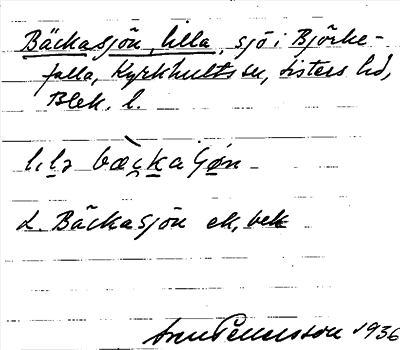 Bäckasjön, lilla, sjö i Björke-
falla, Kyrkhults sn, Listers hd,
Blek. l.
lılə bæ̀cka ʃøn
L. Bäckasjön ek, bek
Sven Benson 1936